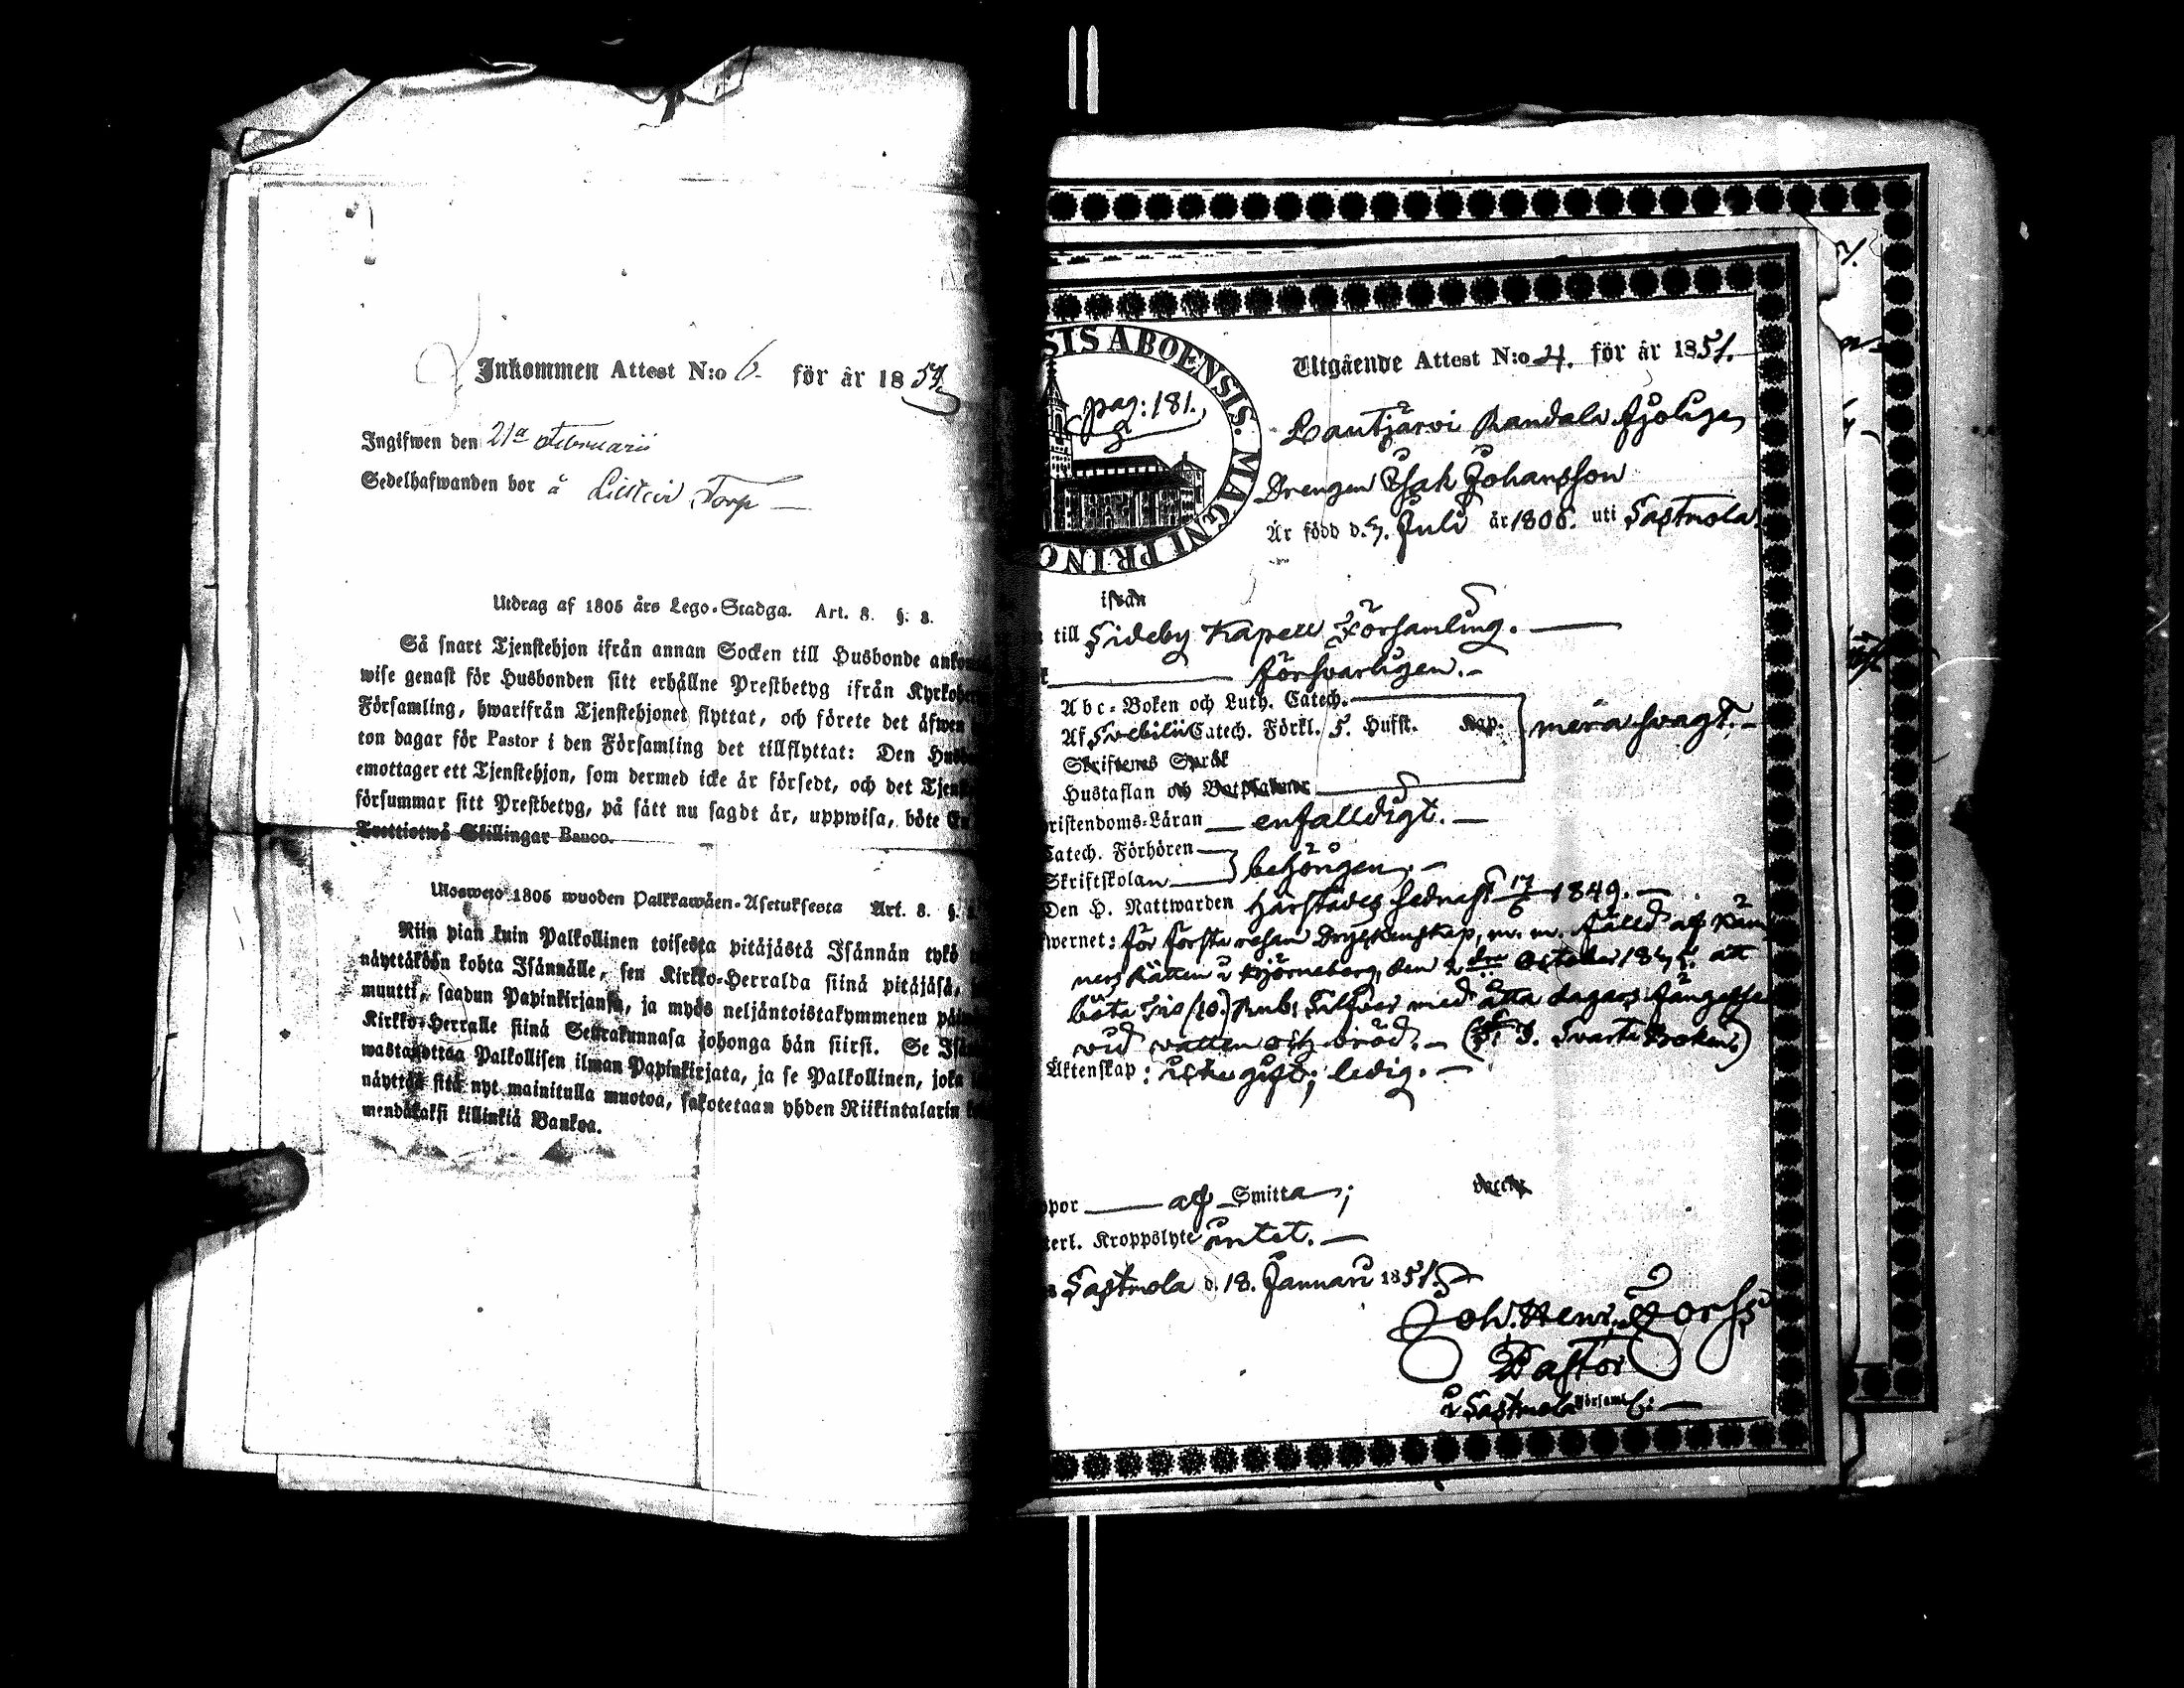 Inkommen Attest N:o 6. för år 1851.
Ingifwen den 21a Februarii
Sedelhafwanden bor å Torp
Utdrag af 1805 års Lego-Stadga. Art. 8. §. 8.
Så snart Tjenstehjon ifrån annan Socken till Husbonde
wise genast för Husbonden sitt erhållne Prestbetyg ifrån
Församling, hwarifrån Tjenstehjonet flyttat, och förete det äfwen
ton dagar för Pastor i den Församling det tillflyttat: Den
emottager ett Tjenstehjon, som dermed icke är försedt, och det
försummar sitt Prestbetyg, på sätt nu sagdt är, uppwisa, böte
Trettiotwå Skillingar Banco.
Ulosweto 1805 wuoden Palkkawäen-Asetuksesta Art. 8. §.
Niin pian kuin Palkollinen toisesta pitäjästä Isännän tykö
näyttäköön kohta Isännälle, sen Kirkko-Herralda siinä pitäjäsä,
muutti, saadun Papinkirjansa, ja myös neljäntoistakymmenen
Kirkko-Herralle siinä Seurakunnasa johonga hän siirst. Se
wastaanottaa Palkollisen ilman Papinkirjata, ja se Palkollinen, joka
näyttää sitä nyt mainitulla muotoa, sakotetaan yhden Riikintalarin
mendäkaksi killinkiä Bankoa.
SIS ABOENSIS. MAGNI PRINC
pag: 181.
Utgående Attest N:o 4. för år 1851.
Drengen Isak Johansson
Är född d. 7. Juli år 1806. uti Sastmola.
ifrån
till Sideby Kapell Församling.
försvarligen.
Abc-Boken och Luth. Catech.
Af Svebilii Catech. Förkl. 5. Hufst. Kap. mera svagt.
Skriftenes Språk
Hustaflan och Botpsalmer
ristendoms-Läran enfalldigt.
Catech. Förhören
Skriftskolan behörigen.
Den H. Nattwarden härstädes sednast 17/6 1849.
wernet: för första resan Dryckenskap, m. m. fälld af Käm
ners Rätten i Björneborg, den 2dra October 184 att
böta Tio (10.) Rub: Silfver med åtta dagars fängelse
vid vatten och bröd. Svarta Boken.)
Äktenskap: icke gift; ledig.
ppor af Smitta; vaccin
terl. Kroppslyte intet.
Sastmola d. 18. Januari 1851.
Joh. Henr. Forss
Pastor
i Sastmola Församl: